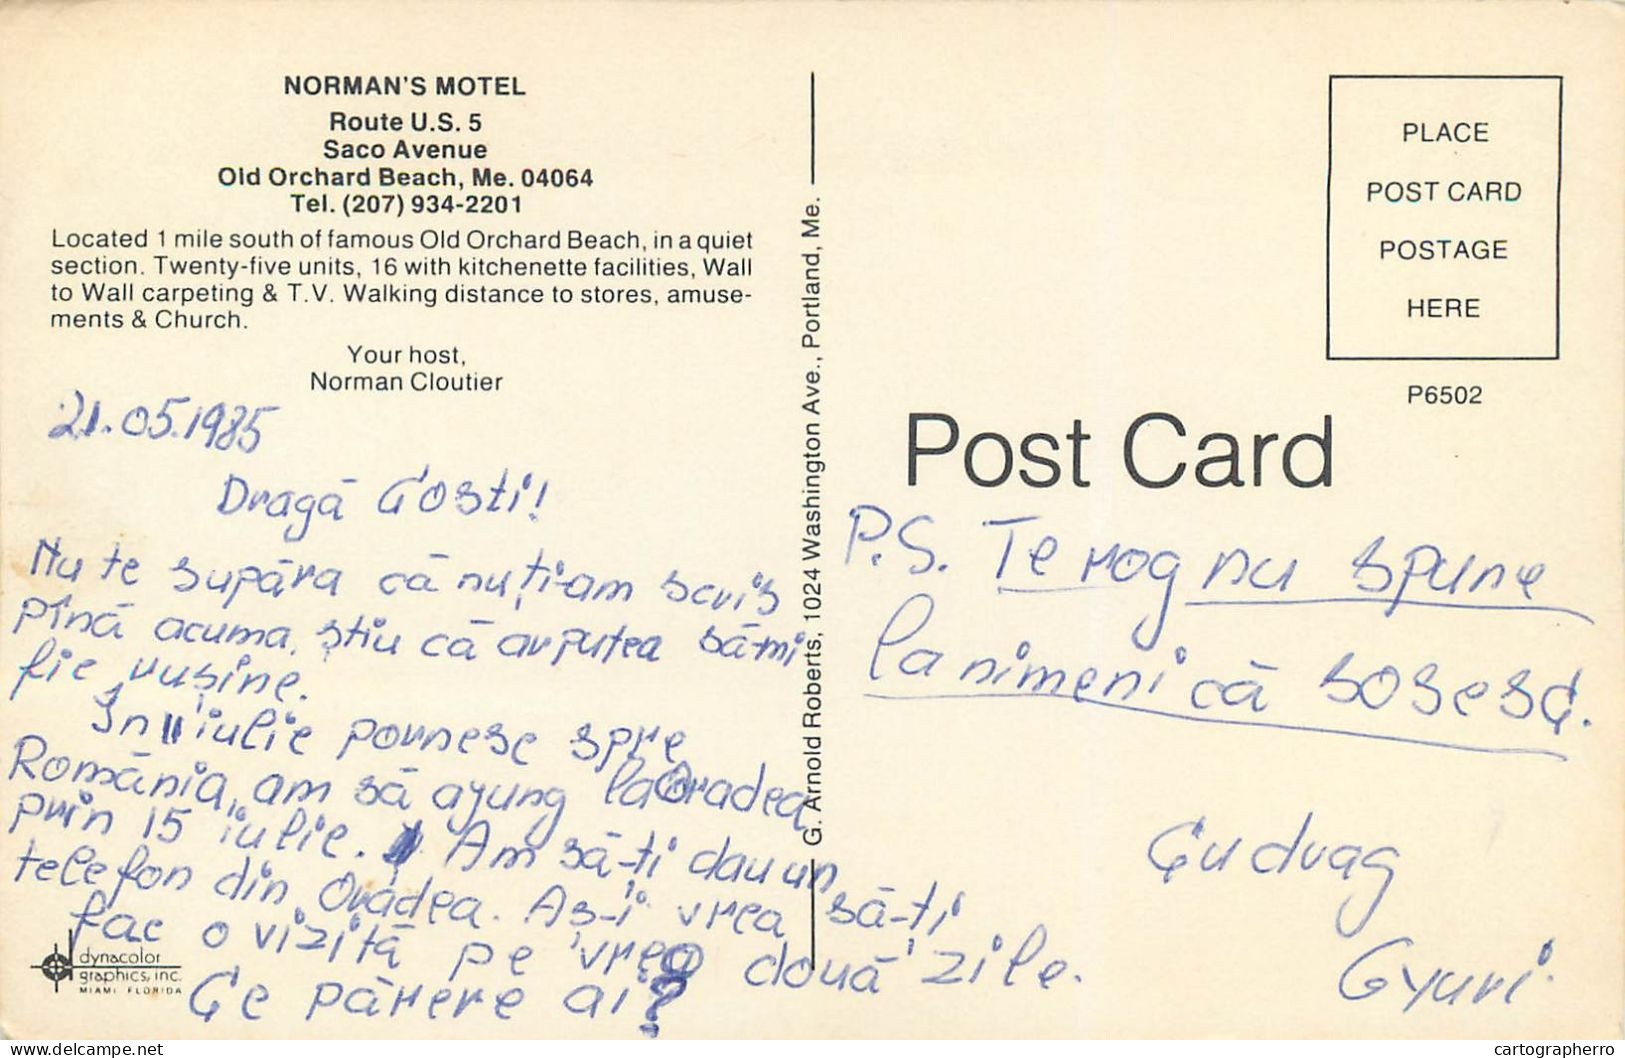 NORMAN'S MOTEL
Route U.S. 5
Saco Avenue
Old Orchard Beach, Me. 04064
Tel. (207) 934-2201
Located 1 mile south of famous Old Orchard Beach, in a quiet
section. Twenty-five units, 16 with kitchenette facilities, Wall
to Wall carpeting & T.V. Walking distance to stores, amuse-
ments & Church.
Your host,
Norman Cloutier
21.05.1985
Dragă Gosti!
Nu te supăra că nu ți-am scris
pînă acuma, știu că ar putea să-mi
fie rușine.
În iulie pornesc spre
România, am să ajung la Oradea
prin 15 iulie. Am să-ti dau un
telefon din Oradea. Aș-i vrea să-ti
fac o vizită pe vreo două zile.
Ce părere ai?
dynacolor
graphics, inc.
MIAMI FLORIDA
G. Arnold Roberts, 1024 Washington Ave., Portland, Me.
PLACE
POST CARD
POSTAGE
HERE
P6502
Post Card
P.S. Te rog nu spune
la nimeni că sosesc.
Cu drag
Gyuri.
www.delcampe.net
cartographerro